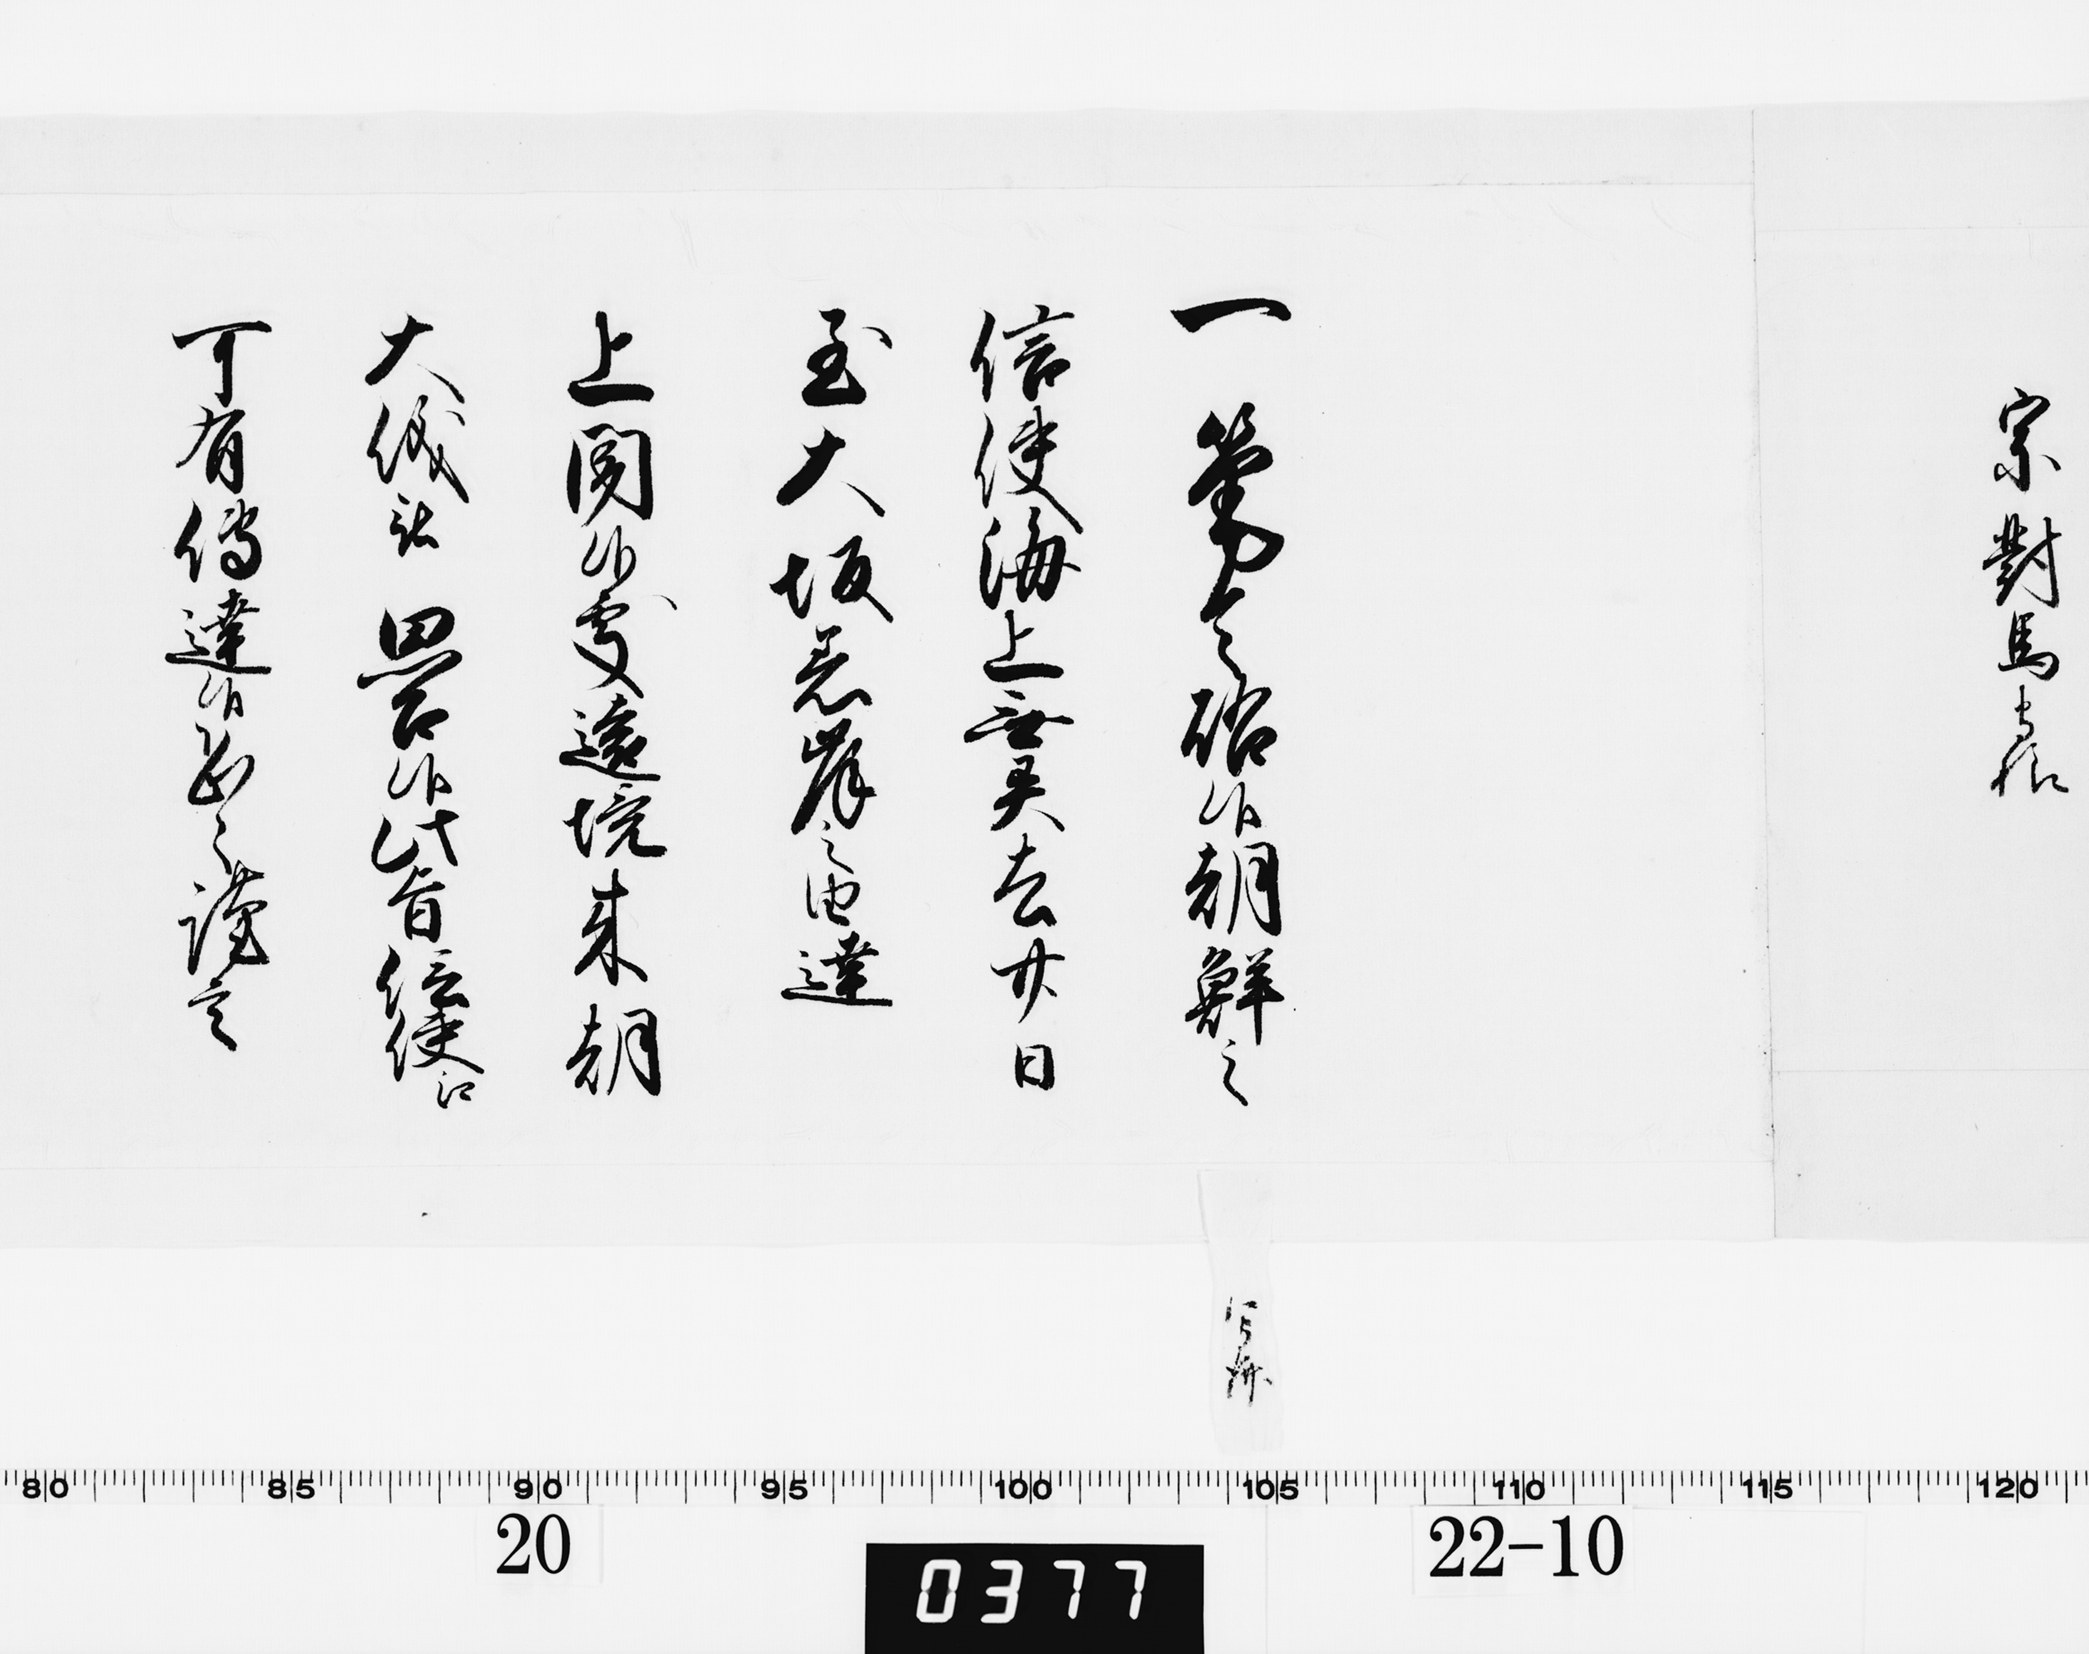 宗對馬守様
一筆令啓候朝鮮之
信使海上無異去廿日
至大坂着岸之由達
上聞候處遠境来朝
大儀被 思召候此旨信使江
可有傳達候恐々謹言
80 85 90 95 100 105 110 115 120
20
22-10
0377